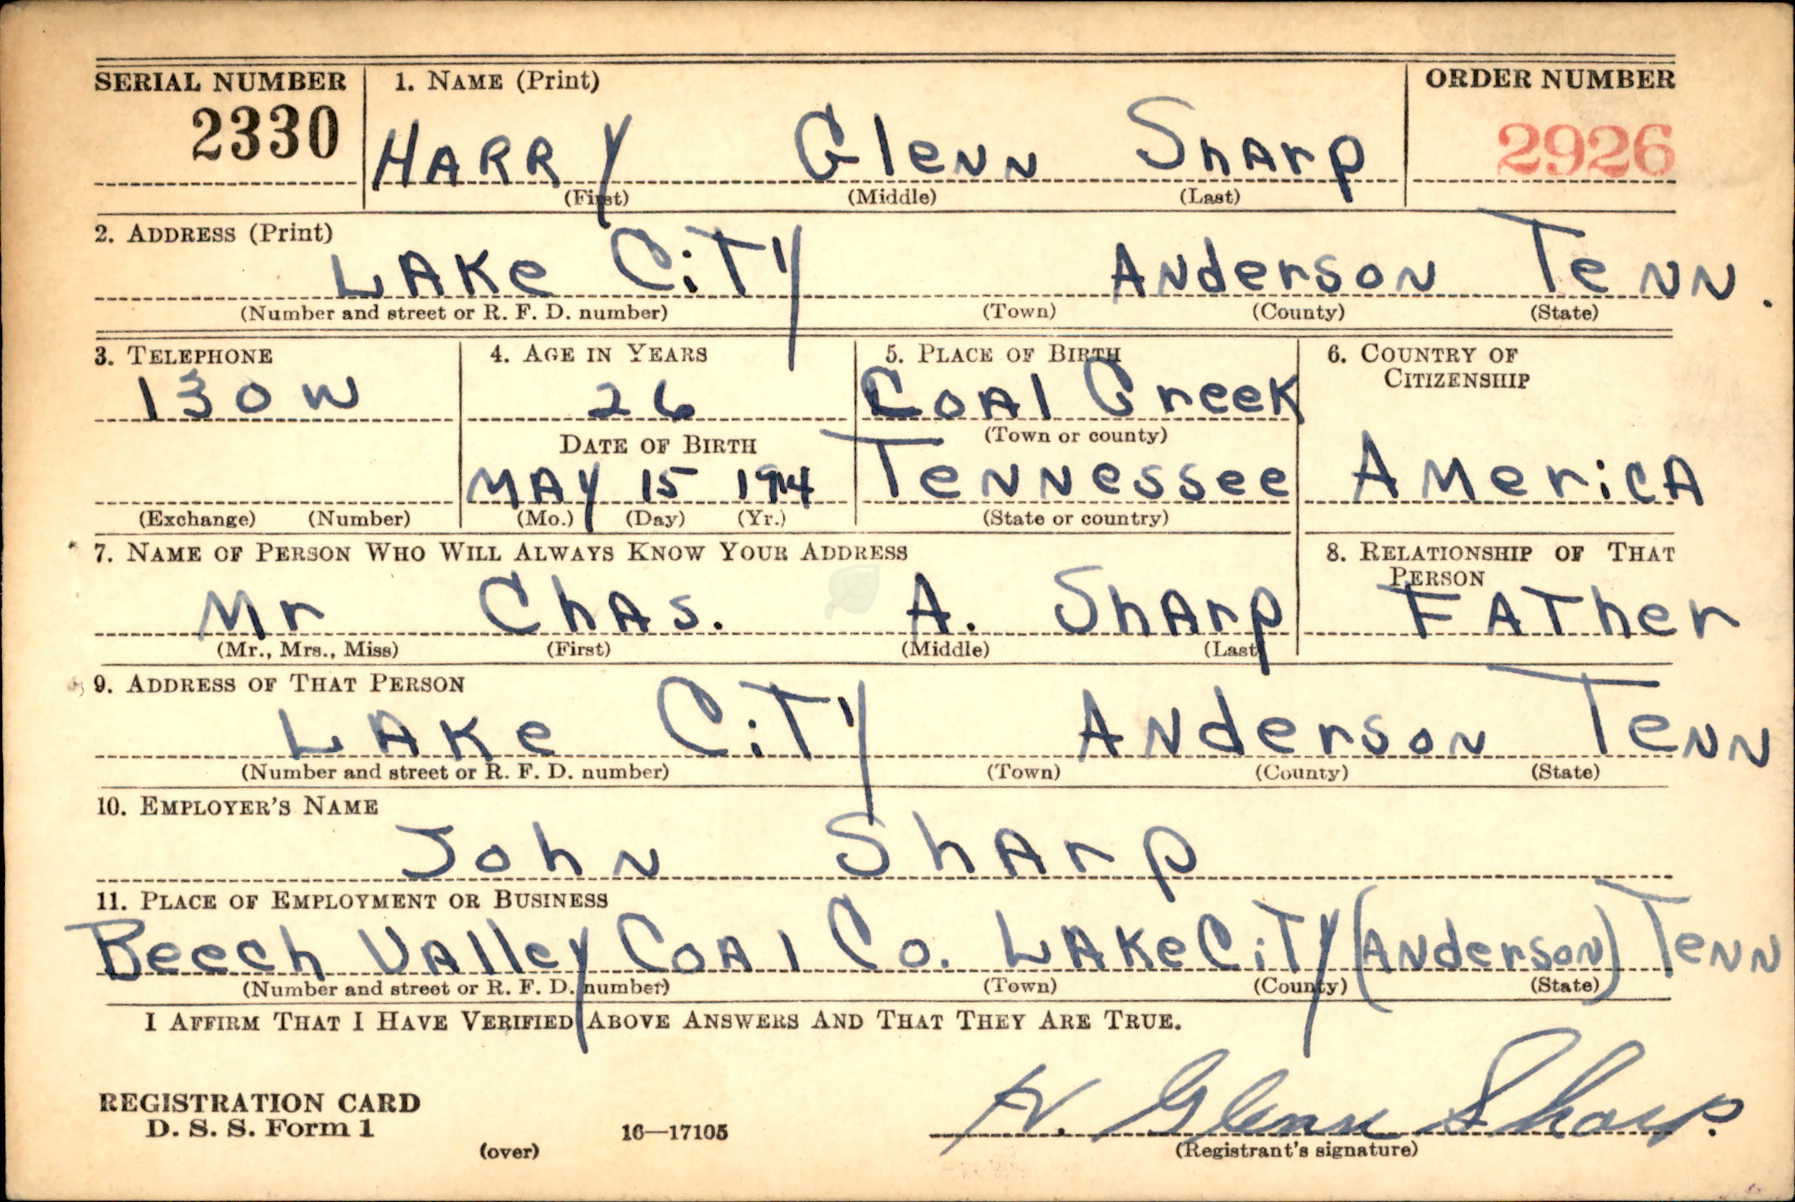 SERIAL NUMBER 1. NAME (Print) ORDER NUMBER
2330 HARRY Glenn Sharp 2926
(First) (Middle) (Last)
2. ADDRESS (Print)
LAKe CiTy Anderson Tenn.
(Number and street or R. F. D. number) (Town) (County) (State)
3. TELEPHONE 4. AGE IN YEARS 5. PLACE OF BIRTH 6. COUNTRY OF CITIZENSHIP
130W 26 Coal Creek
(Town or county)
DATE OF BIRTH
MAY 15 1914 Tennessee America
(Exchange) (Number) (Mo.) (Day) (Yr.) (State or country)
7. NAME OF PERSON WHO WILL ALWAYS KNOW YOUR ADDRESS 8. RELATIONSHIP OF THAT PERSON
Mr Chas. A. Sharp Father
(Mr., Mrs., Miss) (First) (Middle) (Last)
9. ADDRESS OF THAT PERSON
LAKe CiTy Anderson Tenn
(Number and street or R. F. D. number) (Town) (County) (State)
10. EMPLOYER'S NAME
John Sharp
11. PLACE OF EMPLOYMENT OR BUSINESS
Beech Valley Coal Co. LAKe CiTy (Anderson) Tenn
(Number and street or R. F. D. number) (Town) (County) (State)
I AFFIRM THAT I HAVE VERIFIED ABOVE ANSWERS AND THAT THEY ARE TRUE.
REGISTRATION CARD
D. S. S. Form 1
(over) 16—17105
H. Glenn Sharp.
(Registrant's signature)